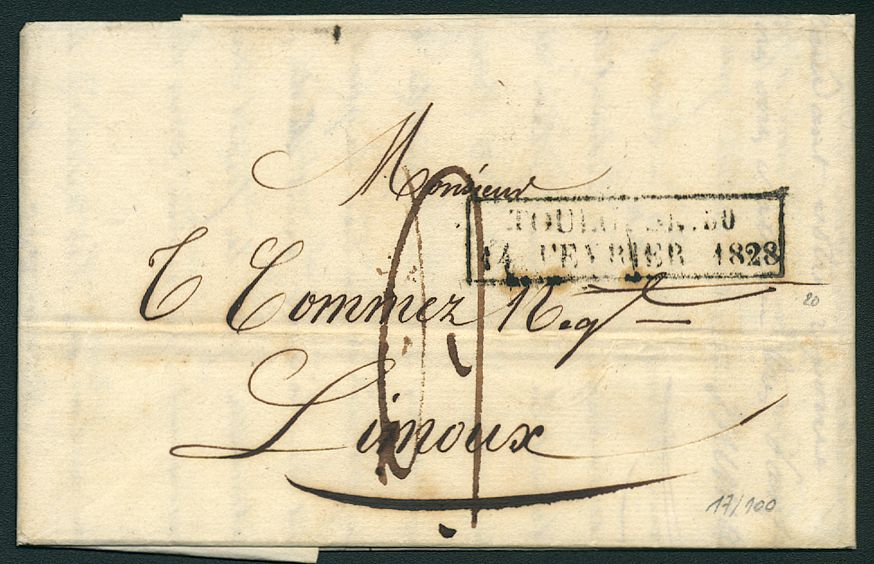 Monsieur
TOULOUSE. 30
14 FEVRIER 1828
T Tommez Negt
20
Limoux
17/100